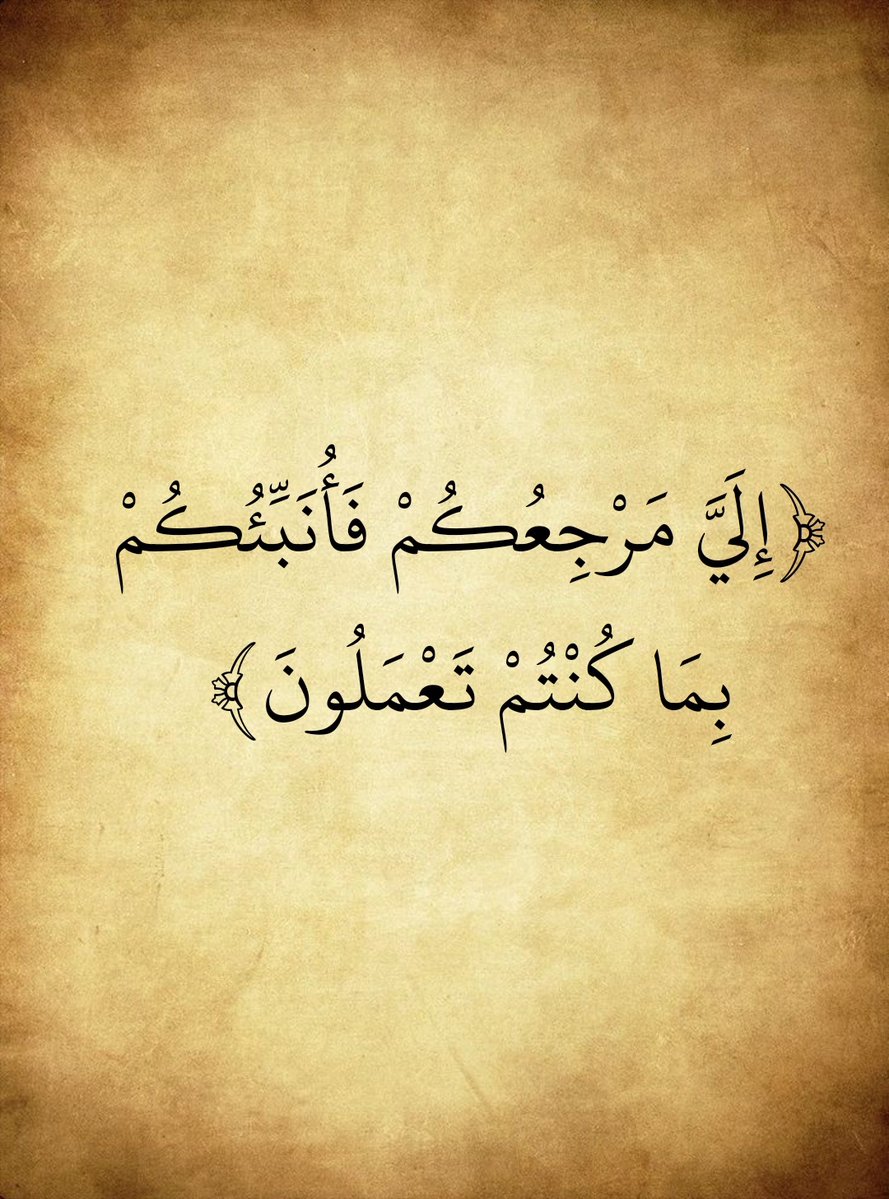 ﴿إِلَيَّ مَرْجِعُكُمْ فَأُنَبِّئُكُمْ
بِمَا كُنْتُمْ تَعْمَلُونَ﴾